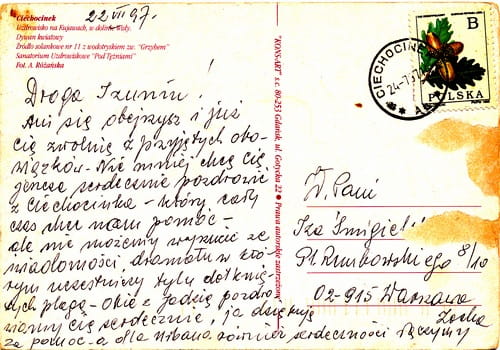 22 VII 97.
Ciechocinek
Uzdrowisko na Kujawach, w dolinie Wisły.
Dywan kwiatowy
Źródło solankowe nr 11 z wodotryskiem zw. "Grzybem"
Sanatorium Uzdrowiskowe "Pod Tężniami"
Fot. A Różańska
Droga Izuniu!
Ani się obejrzysz i już
Cię zwolnię z przyjętych obo-
wiązków. Nie mniej chcę Cię
gorąco serdecznie pozdrowić
z Ciechocinka - który, cały
czas chce nam pomóc -
ale nie możemy wyrzucić ze
wiadomości, dramatu w któ-
rym uczestniczy tylu dotknię-
tych plagą - Obie z Jadzią pozdra-
wiamy Cię serdecznie, ja dziękuję
za pomoc - a dla Urbana również serdeczności łączymy
Zocha
"KONS-ART" s.c. 80-255 Gdańsk, ul. Gotycka 22 ● Prawa autorskie zastrzeżone
CIECHOCINEK
24-7
B
POLSKA
W. Pani
Iza
Pl. Rumkowskiego 8/10
02-915 Warszawa